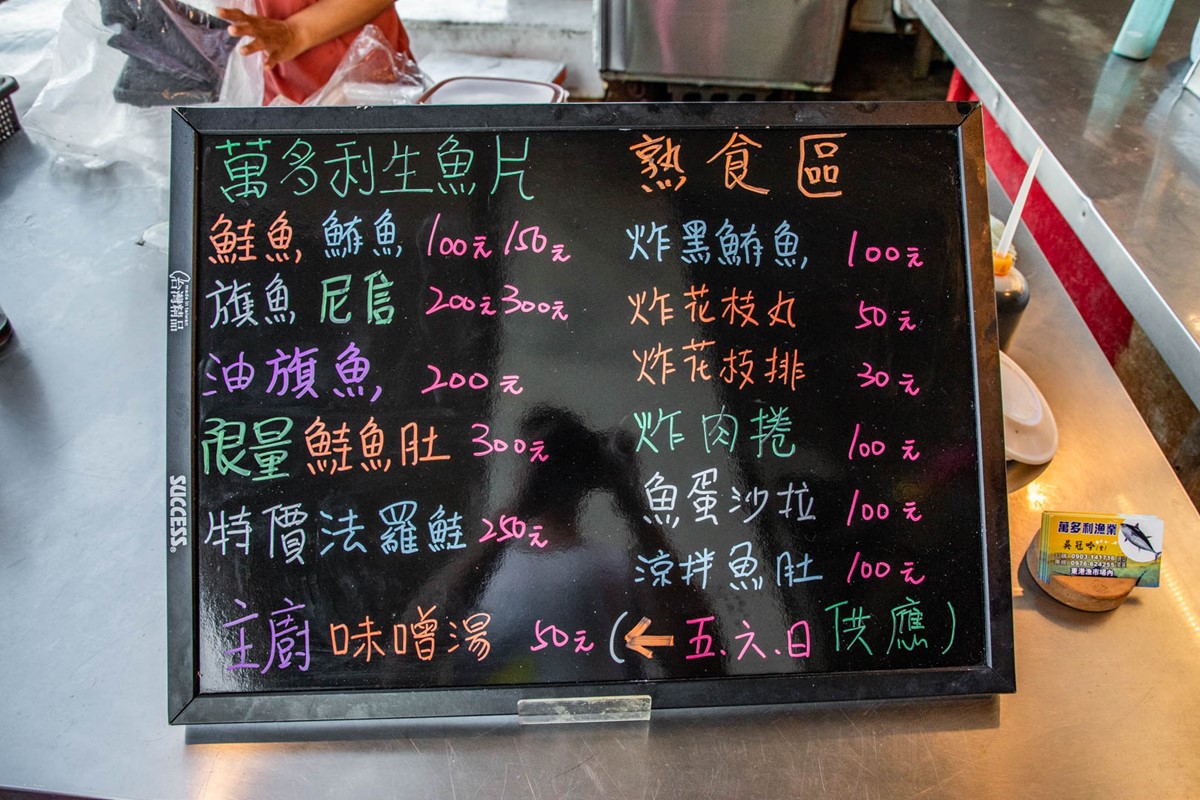 萬多利生魚片
鮭魚 鮪魚 100元 150元
旗魚 尼信 200元 300元
油旗魚 200元
限量 鮭魚肚 300元
特價 法羅鮭 250元
主廚 味噌湯 50元 (← 五.六.日 供應)
熟食區
炸黑鮪魚 100元
炸花枝丸 50元
炸花枝排 30元
炸肉捲 100元
魚蛋沙拉 100元
涼拌魚肚 100元
made in taiwan
台灣精品
SUCCESS®
萬多利漁業
東港漁市場內